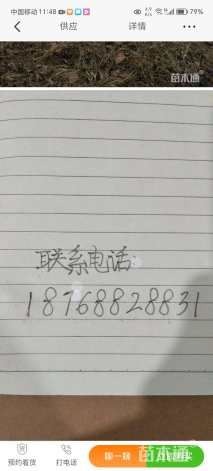 中国移动 11:48
79%
供应
详情
苗木通
联系电话
18768828831
预约看货
打电话
聊一聊
苗木通